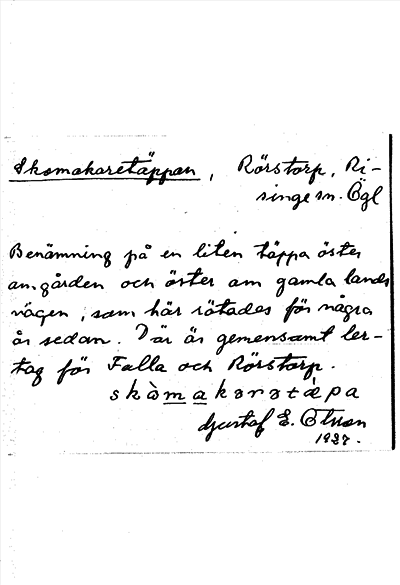 Skomakaretäppan, Rörstorp, Ri-
singe sn. Ögl
Benämning på en liten täppa öster
om gården och öster om gamla lands
vägen, som här rätades för några
år sedan. Där är gemensamt ler-
tag för Falla och Rörstorp.
skòmakərətǽpa
Gustaf E.
1927.